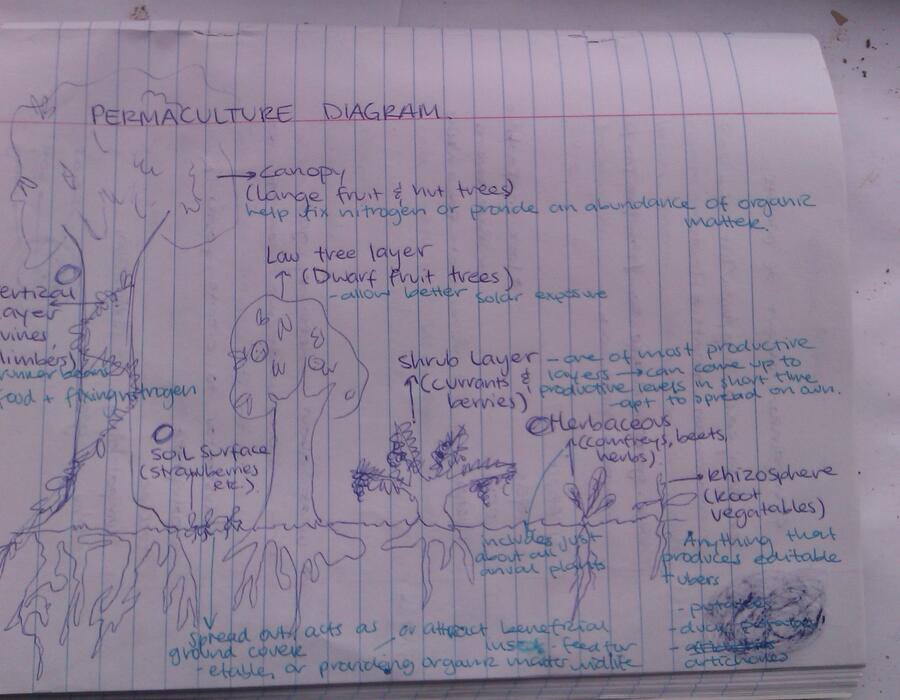 PERMACULTURE DIAGRAM
Canopy
(Large fruit & nut trees)
help fix nitrogen or provide an abundance of organic
matter.
Low tree layer
(Dwarf fruit trees)
- allow better solar exposure
ertical
layer
vines,
limbers)
runner beans
food + fixing nitrogen
Shrub layer
(currants &
berries)
- one of most productive
layers → can come up to
productive levels in short time
- apt to spread on own.
Soil surface
(strawberries
etc.)
Herbaceous
(comfreys, beets,
herbs)
Rhizosphere
(Root
vegatables)
includes just
about all
anual plants
Anything that
produces editable
tubers
- potatoes
- artichokes
Spread out, acts as
ground cover
- etable, or providing organic matter
or attract beneficial
insect - feed for
wildlife